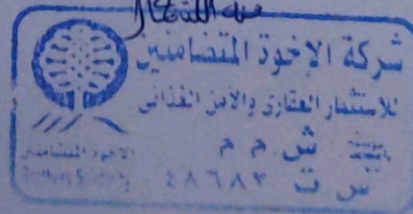 شركة الاخوة المتضامنين
للاستثمار العقارى والامن الغذائى
ش م م
س ت ٤٨٦٨٢
الاخوة المتضامنين